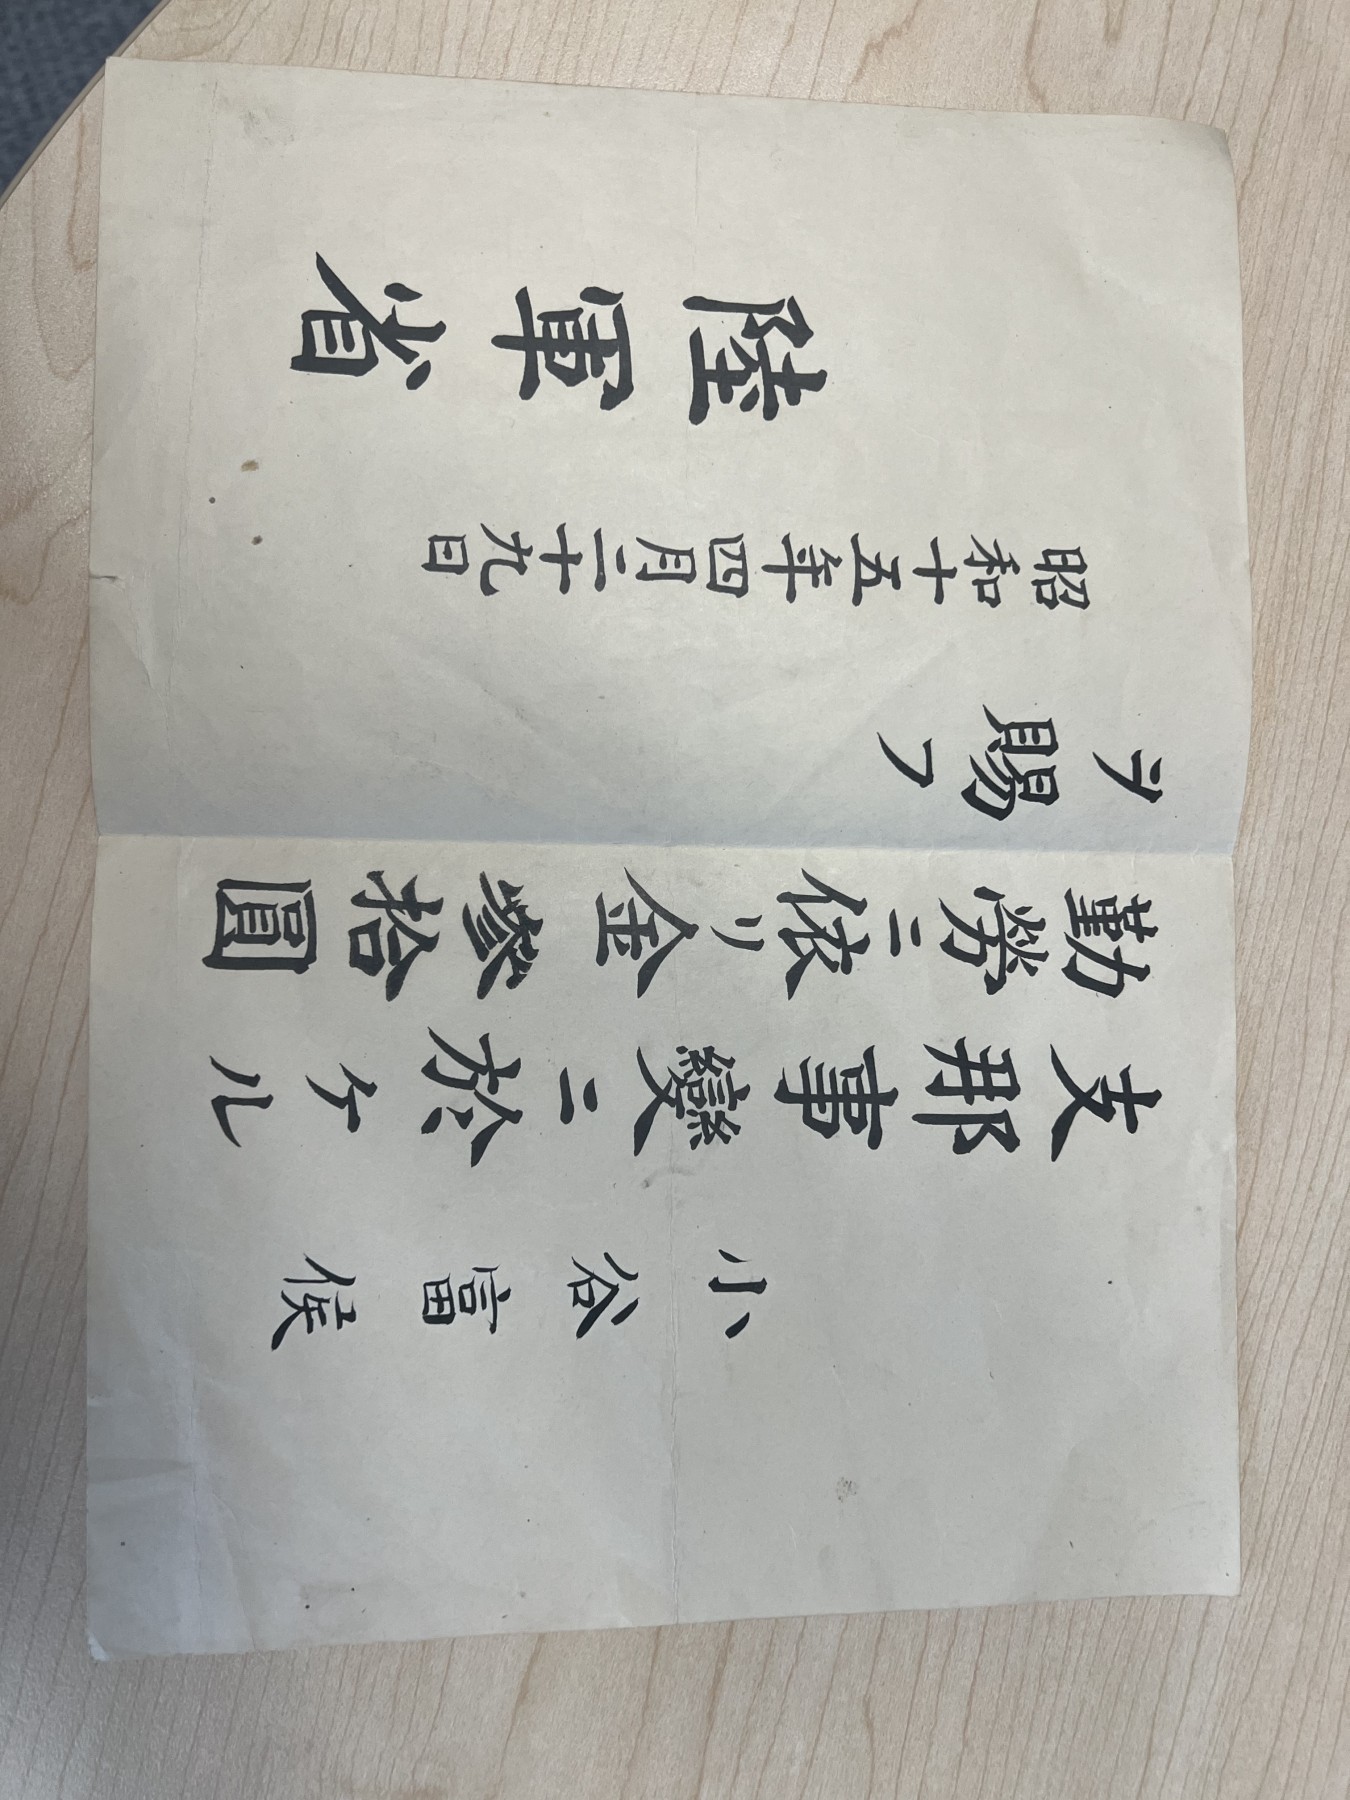 小谷富候
支那事變ニ於ケル
勤勞ニ依リ金參拾圓
ヲ賜フ
昭和十五年四月二十九日
陸軍省